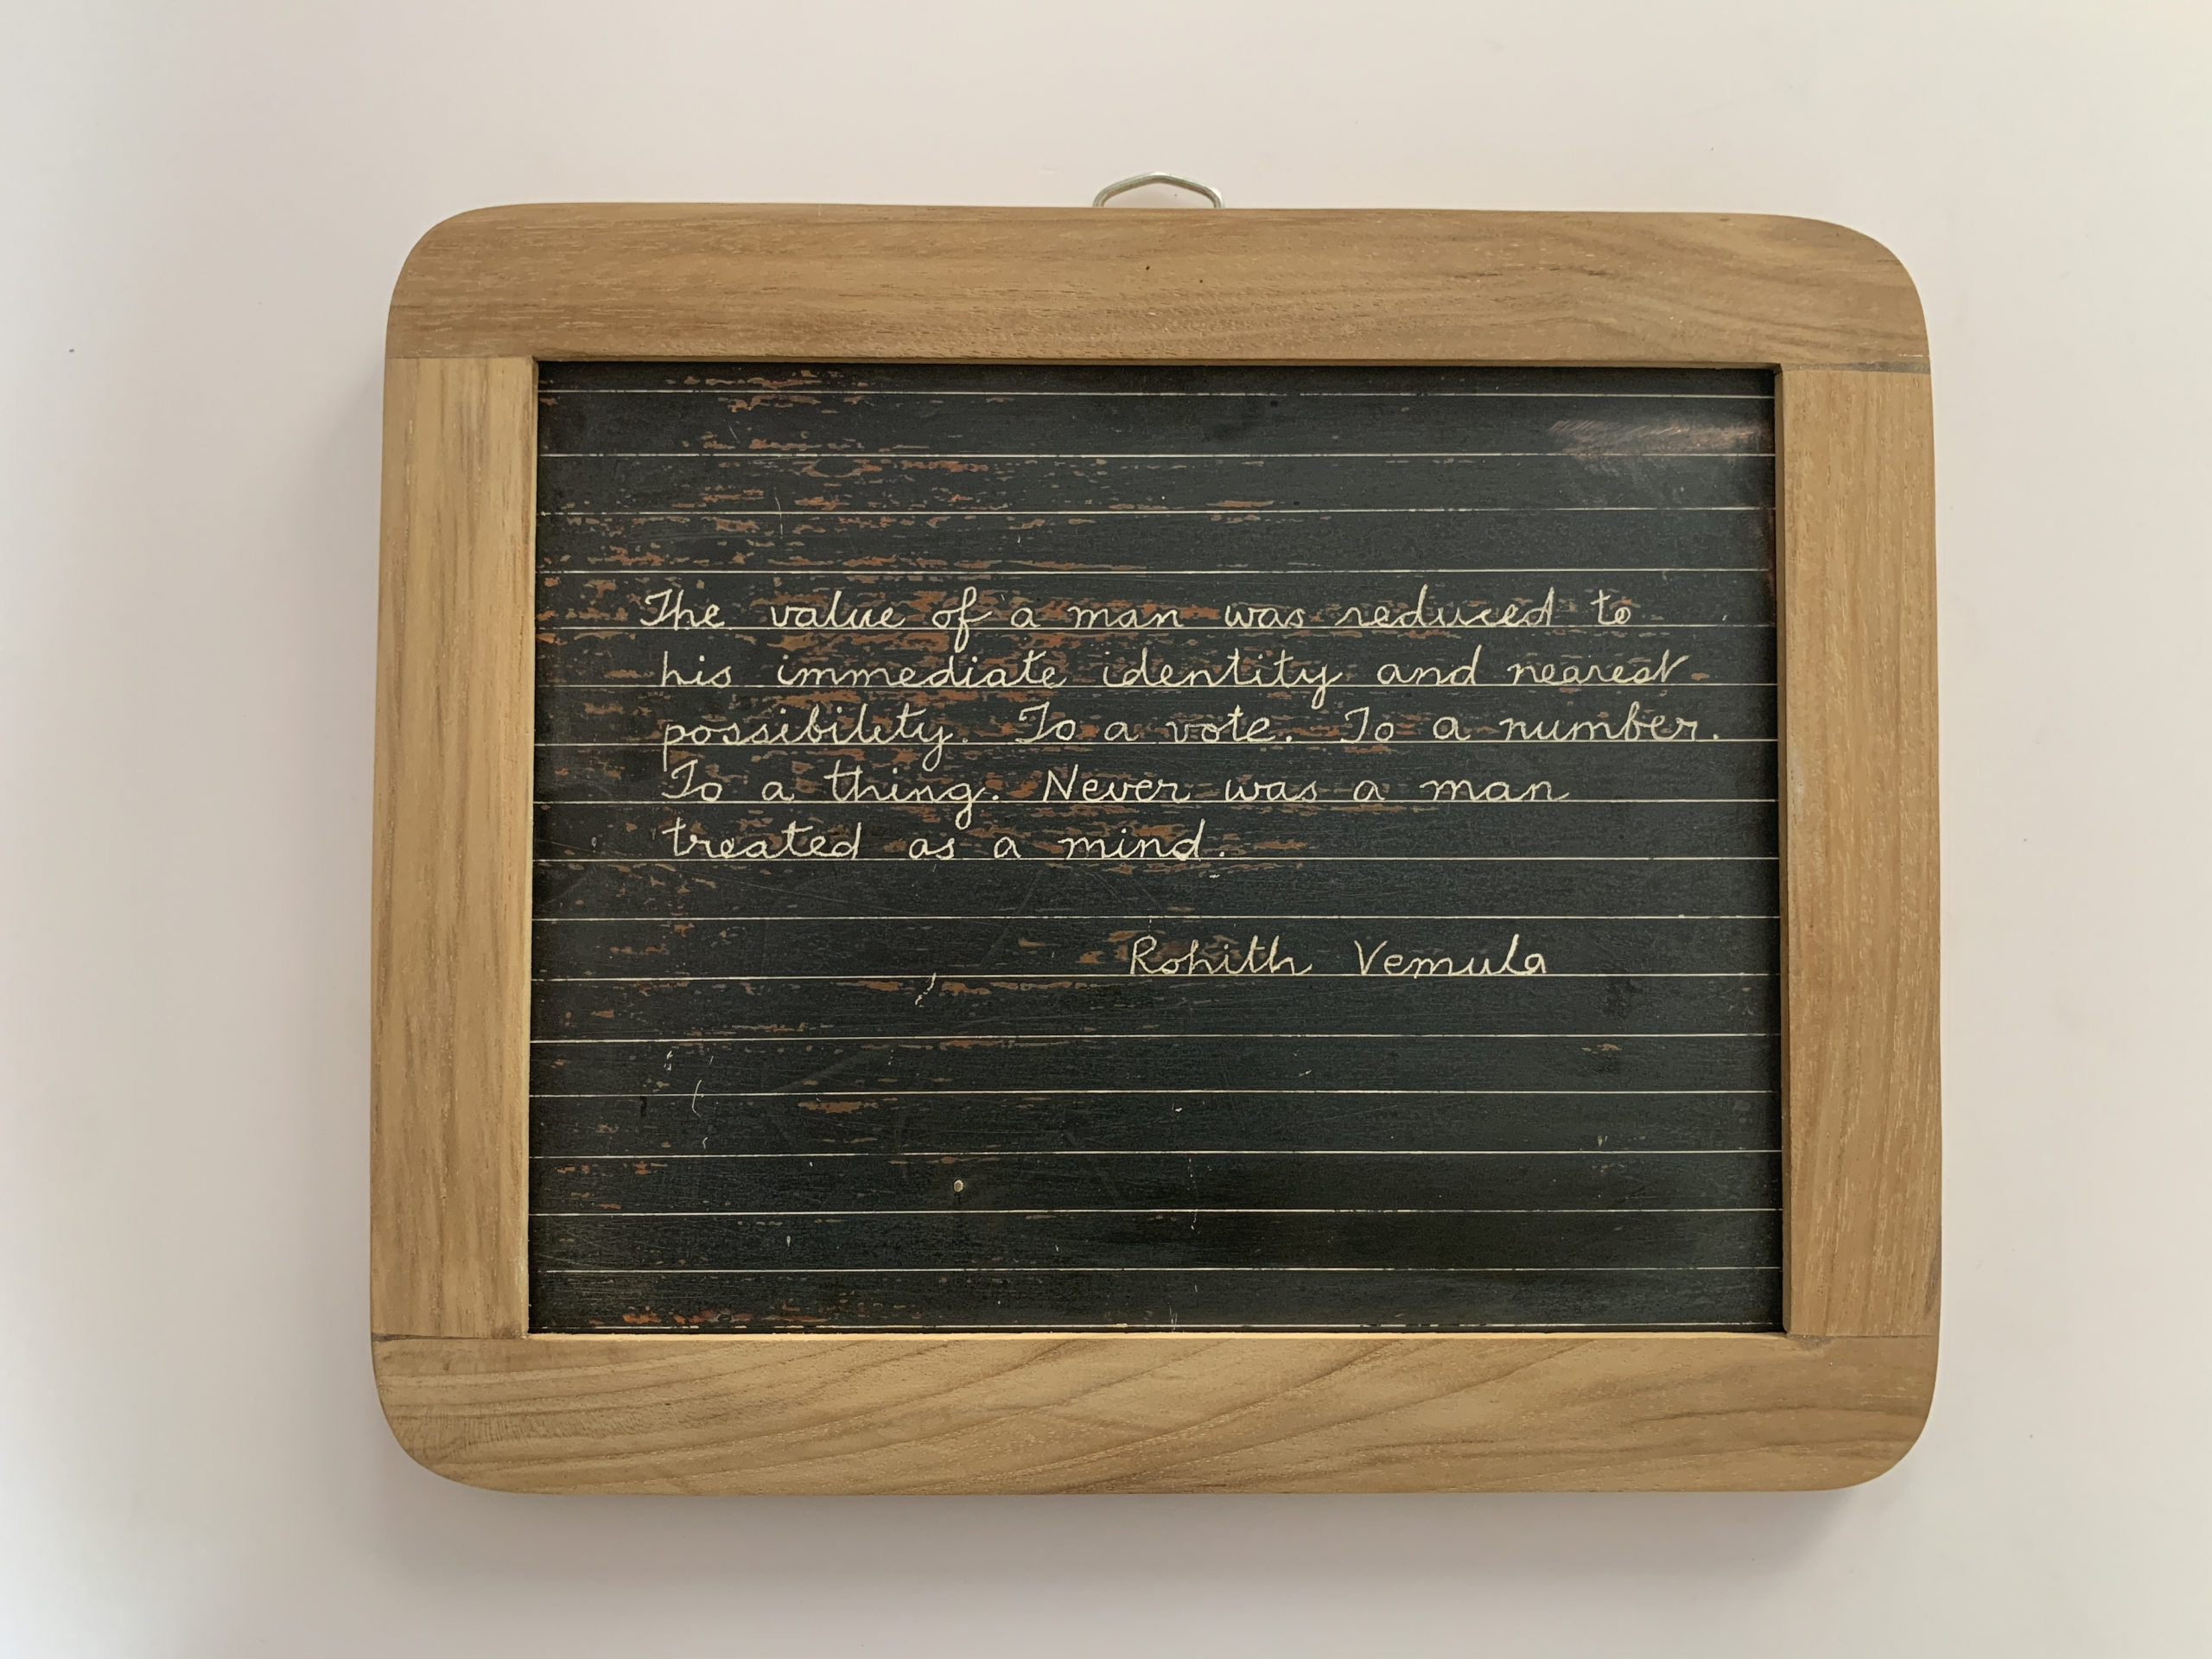 The value of a man was reduced to
his immediate identity and nearest
possibility. To a vote. To a number.
To a thing. Never was a man
treated as a mind.
Rohith Vemula